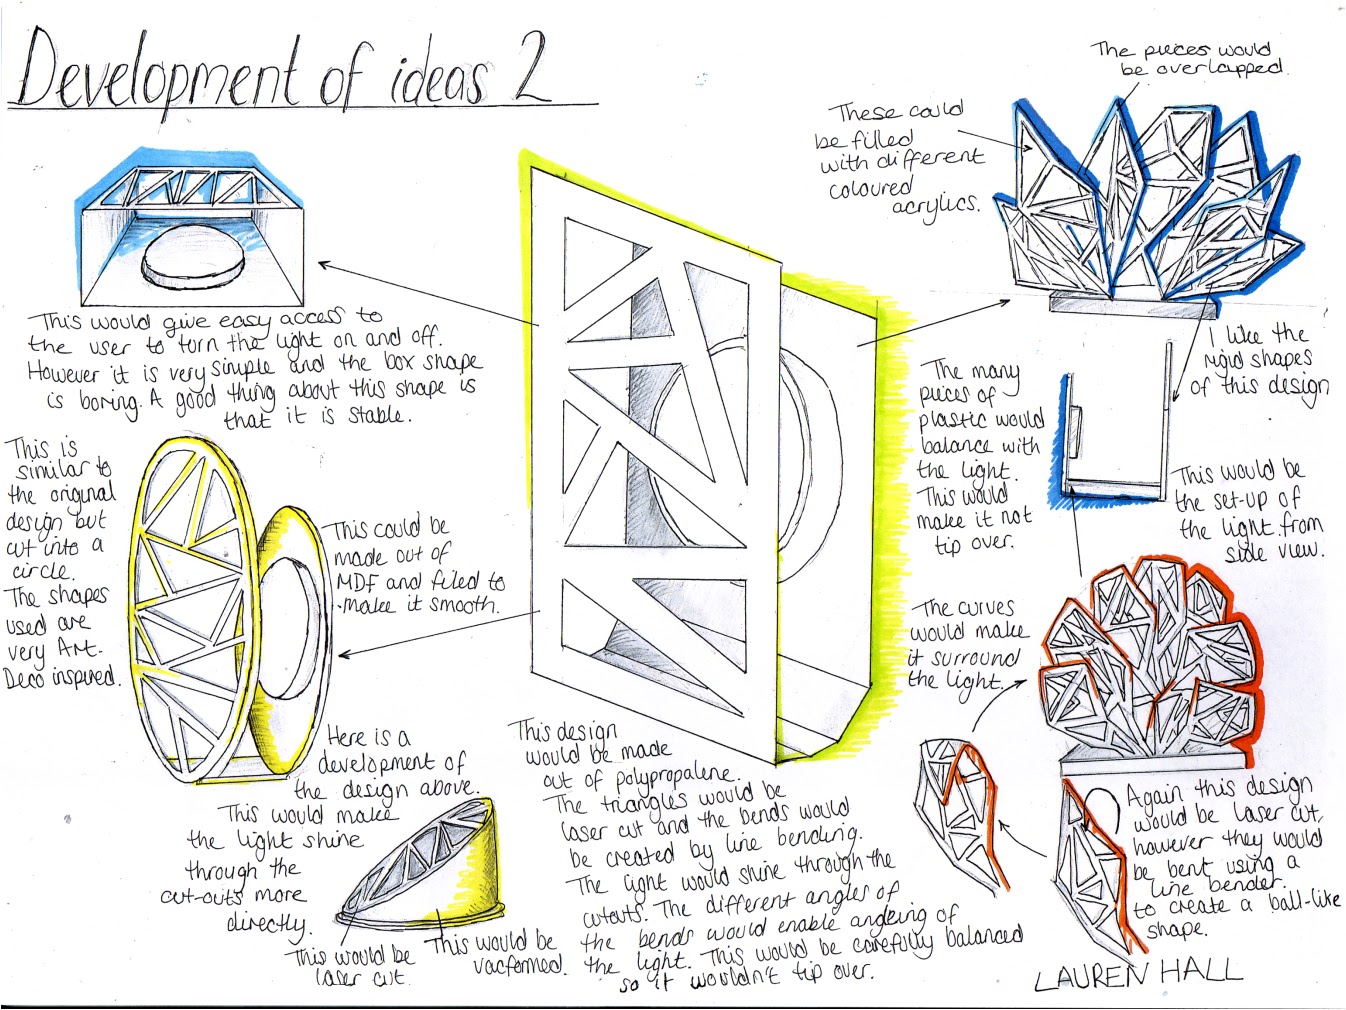 Development of ideas 2
The pieces would
be overlapped.
These could
be filled
with different
coloured
acrylics.
This would give easy access to
the user to turn the light on and off.
However it is very simple and the box shape
is boring. A good thing about this shape is
that it is stable.
I like the
rigid shapes
of this design
The many
pieces of
plastic would
balance with
the light.
This would
make it not
tip over.
This is
similar to
the original
design but
cut into a
circle.
The shapes
used are
very Art-
Deco inspired.
This could be
made out of
MDF and filed to
make it smooth.
This would be
the set-up of
the light from
side view.
The curves
would make
it surround
the light.
Here is a
development of
the design above.
This would make
the light shine
through the
cut-outs more
directly.
This would be
laser cut.
This would be
vacformed.
This design
would be made
out of polypropalene.
The triangles would be
laser cut and the bends would
be created by line bending.
The light would shine through the
cutouts. The different angles of
the bends would enable angleing of
the light. This would be carefully balanced
so it wouldn't tip over.
Again this design
would be laser cut,
however they would
be bent using a
line bender.
to create a ball-like
shape.
LAUREN HALL